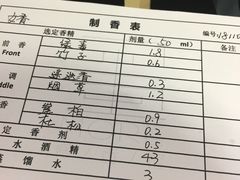 制香表
编号 18110
选定香精 剂量(50 ml) 备注
前香 绿茶 1.8
Front 竹子 0.6
调 0.3
ddle 烟草 1.2
香 雪柏 0.9
杜松 0.2
定香剂 0.5
水酒精 43
蒸馏水 3